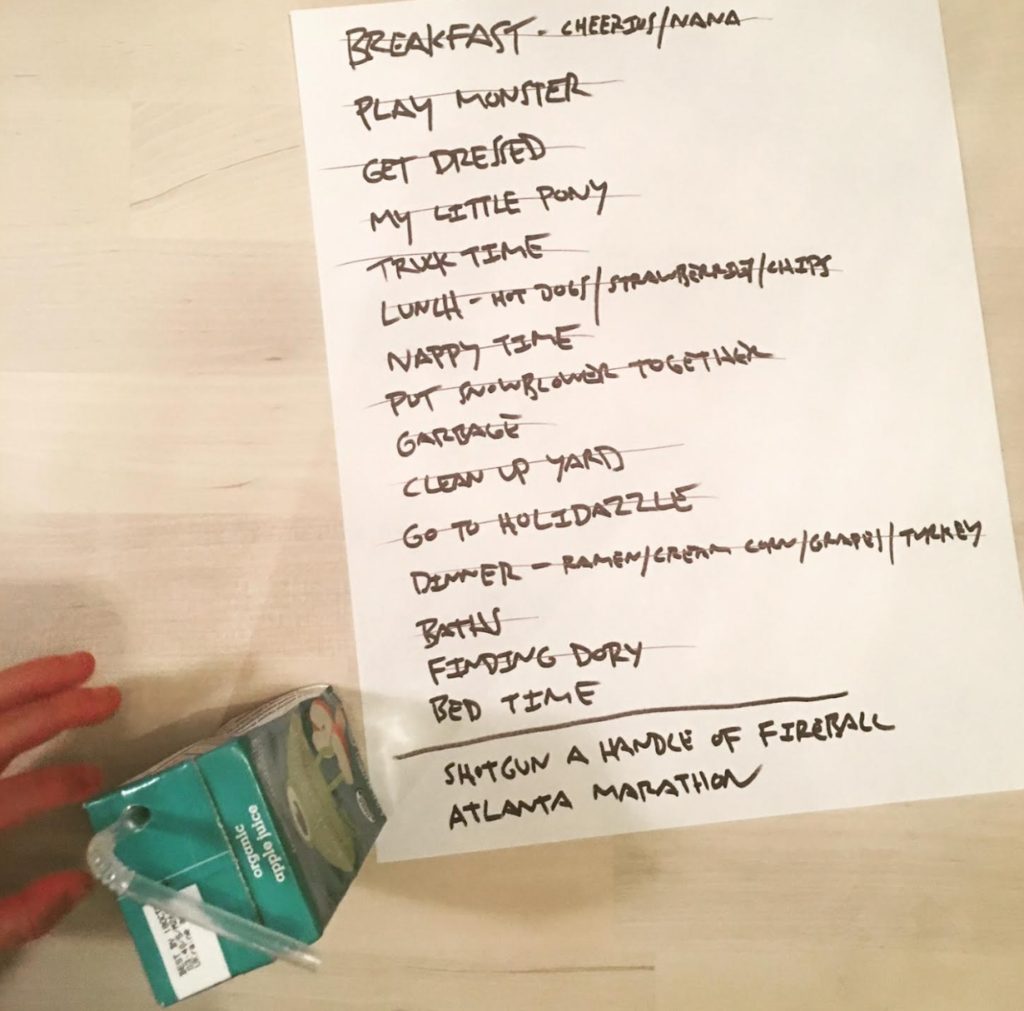 BREAKFAST - CHEERIOS/NANA
PLAY MONSTER
GET DRESSED
MY LITTLE PONY
TRUCK TIME
LUNCH - HOT DOGS/STRAWBERRIES/CHIPS
NAPPY TIME
PUT SNOWBLOWER TOGETHER
GARBAGE
CLEAN UP YARD
GO TO HOLIDAZZLE
DINNER - RAMEN/CREAM CORN/GRAPES/TURKEY
BATHS
FINDING DORY
BED TIME
SHOTGUN A HANDLE OF FIREBALL
ATLANTA MARATHON
organic
apple juice
BEST BY